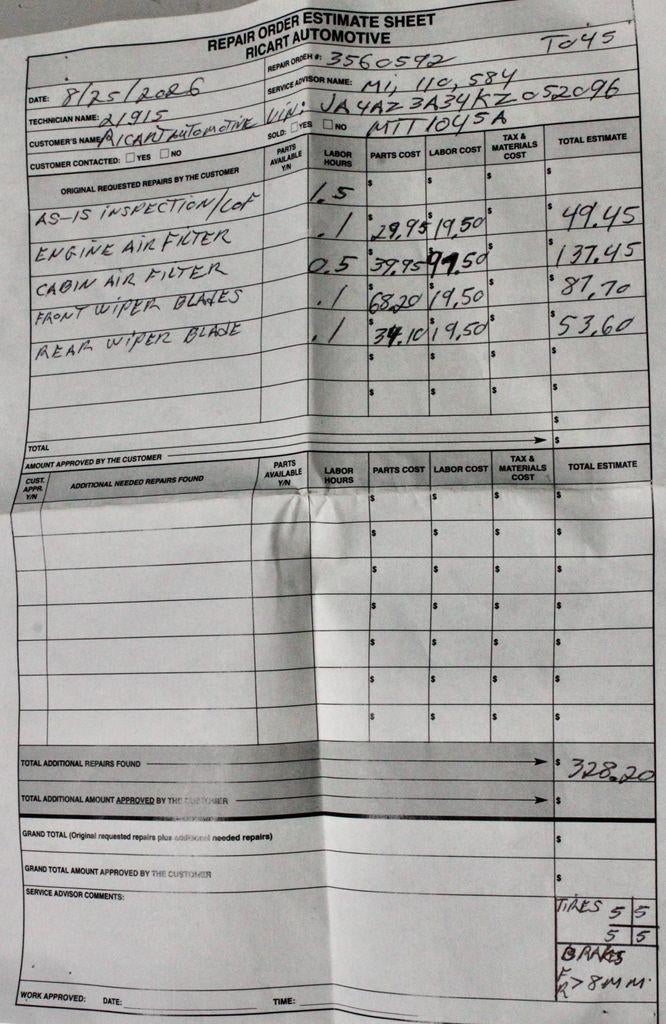 REPAIR ORDER ESTIMATE SHEET
RICART AUTOMOTIVE
TO45
DATE: 8/25/2026 REPAIR ORDER #: 3560592
TECHNICIAN NAME: 21915 SERVICE ADVISOR NAME: Mi, 110,584
CUSTOMER'S NAME: RICART AUTOMOTIVE VIN: JA4AZ3A34KZ052096
CUSTOMER CONTACTED: YES NO SOLD: YES NO MTT1045A
ORIGINAL REQUESTED REPAIRS BY THE CUSTOMER PARTS AVAILABLE Y/N LABOR HOURS PARTS COST LABOR COST TAX & MATERIALS COST TOTAL ESTIMATE
AS-IS INSPECTION/LOF 1.5 $ $ $
ENGINE AIR FILTER .1 29.95 19.50 49.45
CABIN AIR FILTER 0.5 39.95 97.50 137.45
FRONT WIPER BLADES .1 68.20 19.50 87.70
REAR WIPER BLADE .1 34.10 19.50 53.60
$ $ $ $
$ $ $ $
$
TOTAL $
AMOUNT APPROVED BY THE CUSTOMER
CUST. APPR. Y/N ADDITIONAL NEEDED REPAIRS FOUND PARTS AVAILABLE Y/N LABOR HOURS PARTS COST LABOR COST TAX & MATERIALS COST TOTAL ESTIMATE
$ $ $ $
$ $ $ $
$ $ $ $
$ $ $ $
$ $ $ $
$ $ $ $
$ $ $ $
TOTAL ADDITIONAL REPAIRS FOUND $ 328.20
TOTAL ADDITIONAL AMOUNT APPROVED BY THE CUSTOMER $
GRAND TOTAL (Original requested repairs plus additional needed repairs) $
GRAND TOTAL AMOUNT APPROVED BY THE CUSTOMER $
SERVICE ADVISOR COMMENTS:
TIRES 5 5
5 5
BRAKES
F
R >8MM
WORK APPROVED: DATE: TIME: